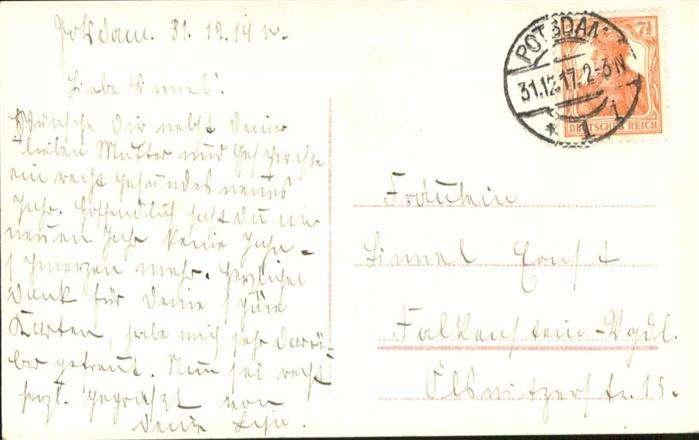 Potsdam. 31. 12. 17
Liebe Linnel!
Wünsche Dir nebst Deiner
lieben Mutter und Geschwister
ein recht gesundes neues
Jahr. Hoffentlich hast Du im
neuen Jahr keine Zahn-
schmerzen mehr. Herzlichen
Dank für Deine schöne
Karten, habe mich sehr darü-
ber gefreut. Nun sei recht
herzl. gegrüßt von
Deiner
POTSDAM
31.12.17. 2-3 N
* 1 i
7½
DEUTSCHES REICH
Fräulein
Linnel Ernst
Falkenstein-Vgdl.
Ölsnitzerstr. 15.